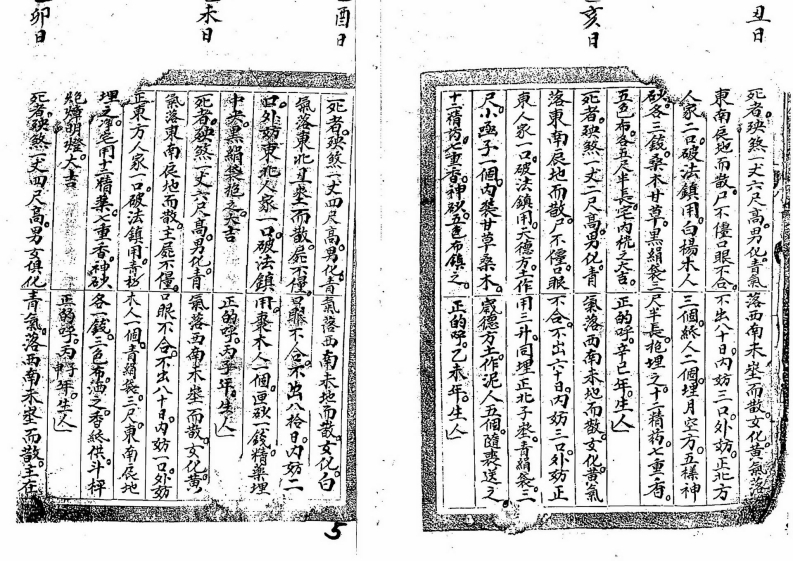 丑日
死者殃煞一丈六尺高。男化青氣落西南未坐而散。女化黃氣落
東南辰地而散。尸不僵口眼不合。不出八十日內妨三口。外妨正北方
人家二口。破法鎮用。白楊木人三個。紙人二個。埋月空方。五樣神
砂各三錢。桑木甘草。黑絹袋三尺半長。拖埋之。十二精葯七重香。
五色布各五尺半長。宅內梳之大吉。正的呼。辛巳年。生人
亥日
死者殃煞一丈二尺高。男化青氣落西南未地而散。女化黃氣
落東南辰地而散。尸不僵口眼不合。不出六十日。內妨三口。外妨正
東人家一口。破法鎮用。天德方土。作用三斗。同埋正北子坐。青絹袋三
尺。小函子一個。內裝甘草桑木。歲德方土。作泥人五個。隨喪送之。
十二精葯七重香。神砂。五色布鎮之。正的呼。乙未年。生人
酉日
死者。殃煞一丈四尺高。男化青氣落西南未地而散。女化。白
氣落東北丑坐而散。屍不僵。口眼不合。不出八拾日。內妨二
口。外妨東北人家一口。破法鎮用。棗木人一個。砂一錢。精藥埋
中央。黑絹袋拖之大吉 正的呼。丙子年。生人
未日
死者。殃煞一丈六尺高。男化青氣落西南未坐而散。女化黃
氣落東南辰地而散。主屍不僵。口眼不合。不出八十日。內妨一口。外妨
正東方人家一口。破法鎮用。青楊木人一個。青絹袋三尺。東南辰地
埋之。宅用十二精藥。七重香。神砂各一錢。三色布之。香紙供斗秤
明燈大吉 正的呼。丙年。生人
卯日
死者。殃煞一丈四尺高。男女俱化青氣。落西南未坐而散。主在
5